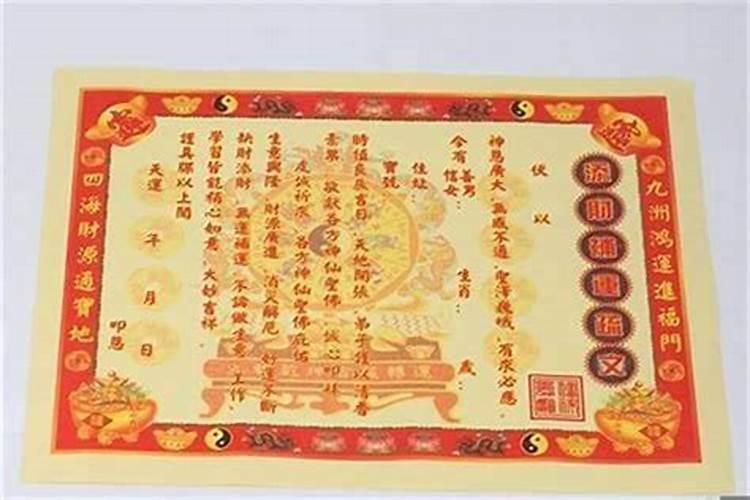 九洲鴻運進福門
添財補運疏文
伏以
神恩廣大 無感不通 聖澤巍峨 有求必應
今有善男信女： 生肖： 歲：
住址：
寶號
時值良辰吉日 天地開張 弟子謹以清香
素果 敬獻各方神仙聖佛 誠心叩拜
虔誠祈求 各方神仙聖佛庇佑
生意興隆 財源廣進 消災解厄 好運不斷
缺財添財 無運補運 不論做生意 工作、
學習皆能稱心如意 大妙吉祥。
謹具疏以上聞
天運 年 月 日 叩懇
四海財源通寶地